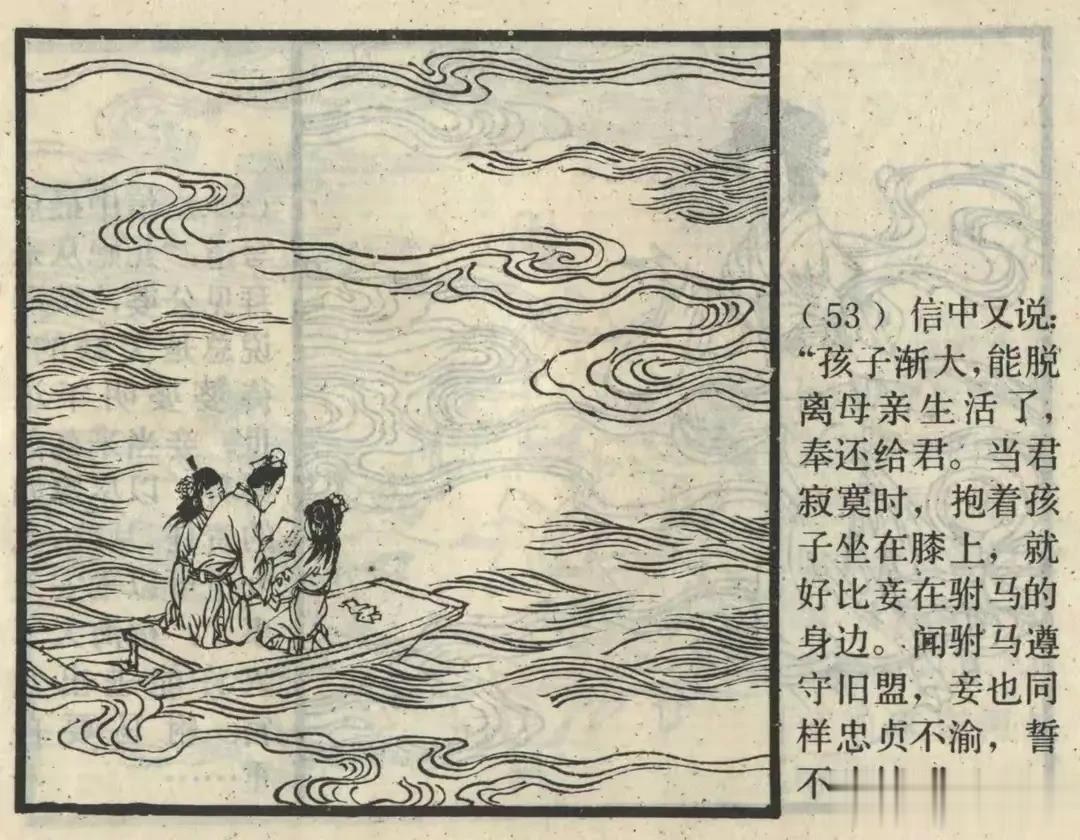 （53）信中又说：
“孩子渐大，能脱
离母亲生活了，
奉还给君。当君
寂寞时，抱着孩
子坐在膝上，就
好比妾在驸马的
身边。闻驸马遵
守旧盟，妾也同
样忠贞不渝，誓
不